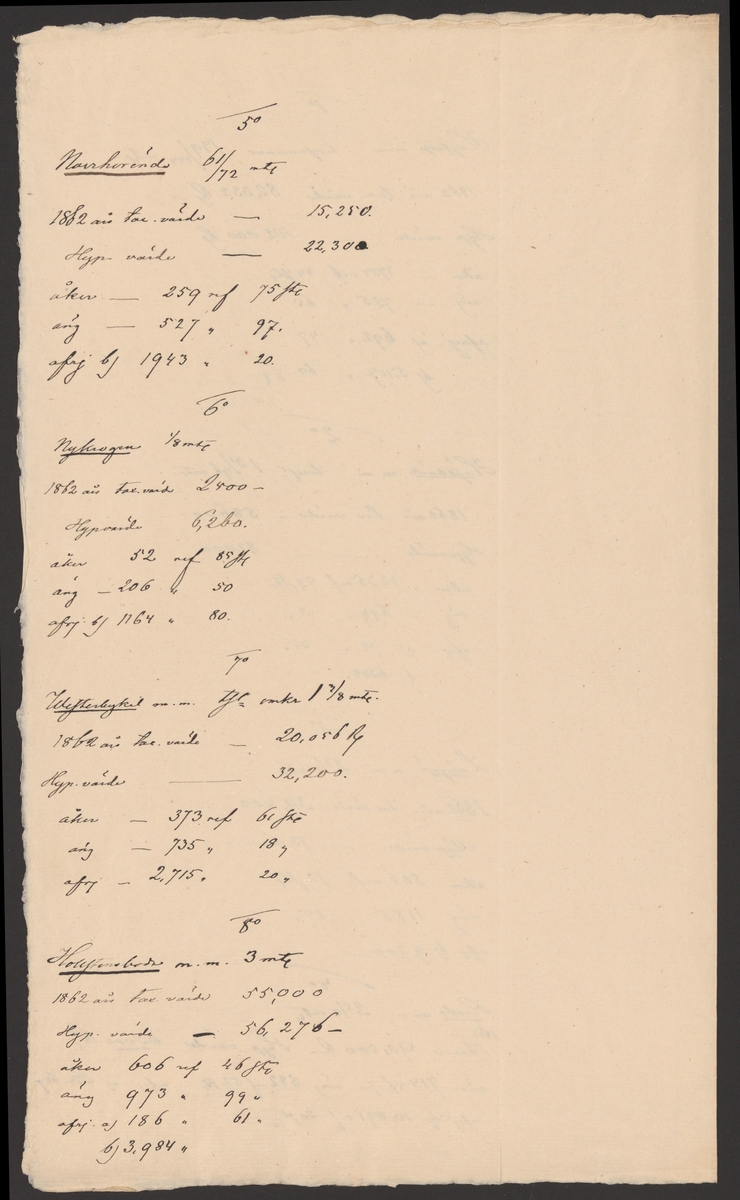 5º
61/72 mtl
1862 års tax. värde — 15,250.
Hyp. värde — 22,300
åker — 259 ref 75 stg
äng — 527 " 97.
afrj b) 1943 " 20.
6º
Nykrogen 1/8 mtl
1862 års tax. värde 2400 —
Hypvärde 6,260.
åker 52 ref 85 stg
äng — 206 " 50
afrj. b) 1164 " 80.
7º
m. m. omkr 1 3/8 mtl.
1862 års tax. värde — 20,056
Hyp. värde — 32,200.
åker — 373 ref 61 stg
äng — 735 " 18 "
afrj — 2,715 " 20 "
8º
m. m. 3 mtl
1862 års tax. värde 55,000
Hyp. värde — 56,276 —
åker 606 ref 46 stg
äng 973 " 99 "
afrj. a) 186 " 61 "
b) 3,984 "